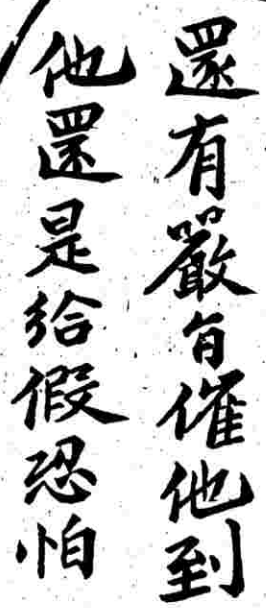 還有嚴旨催他到
他還是給假恐怕